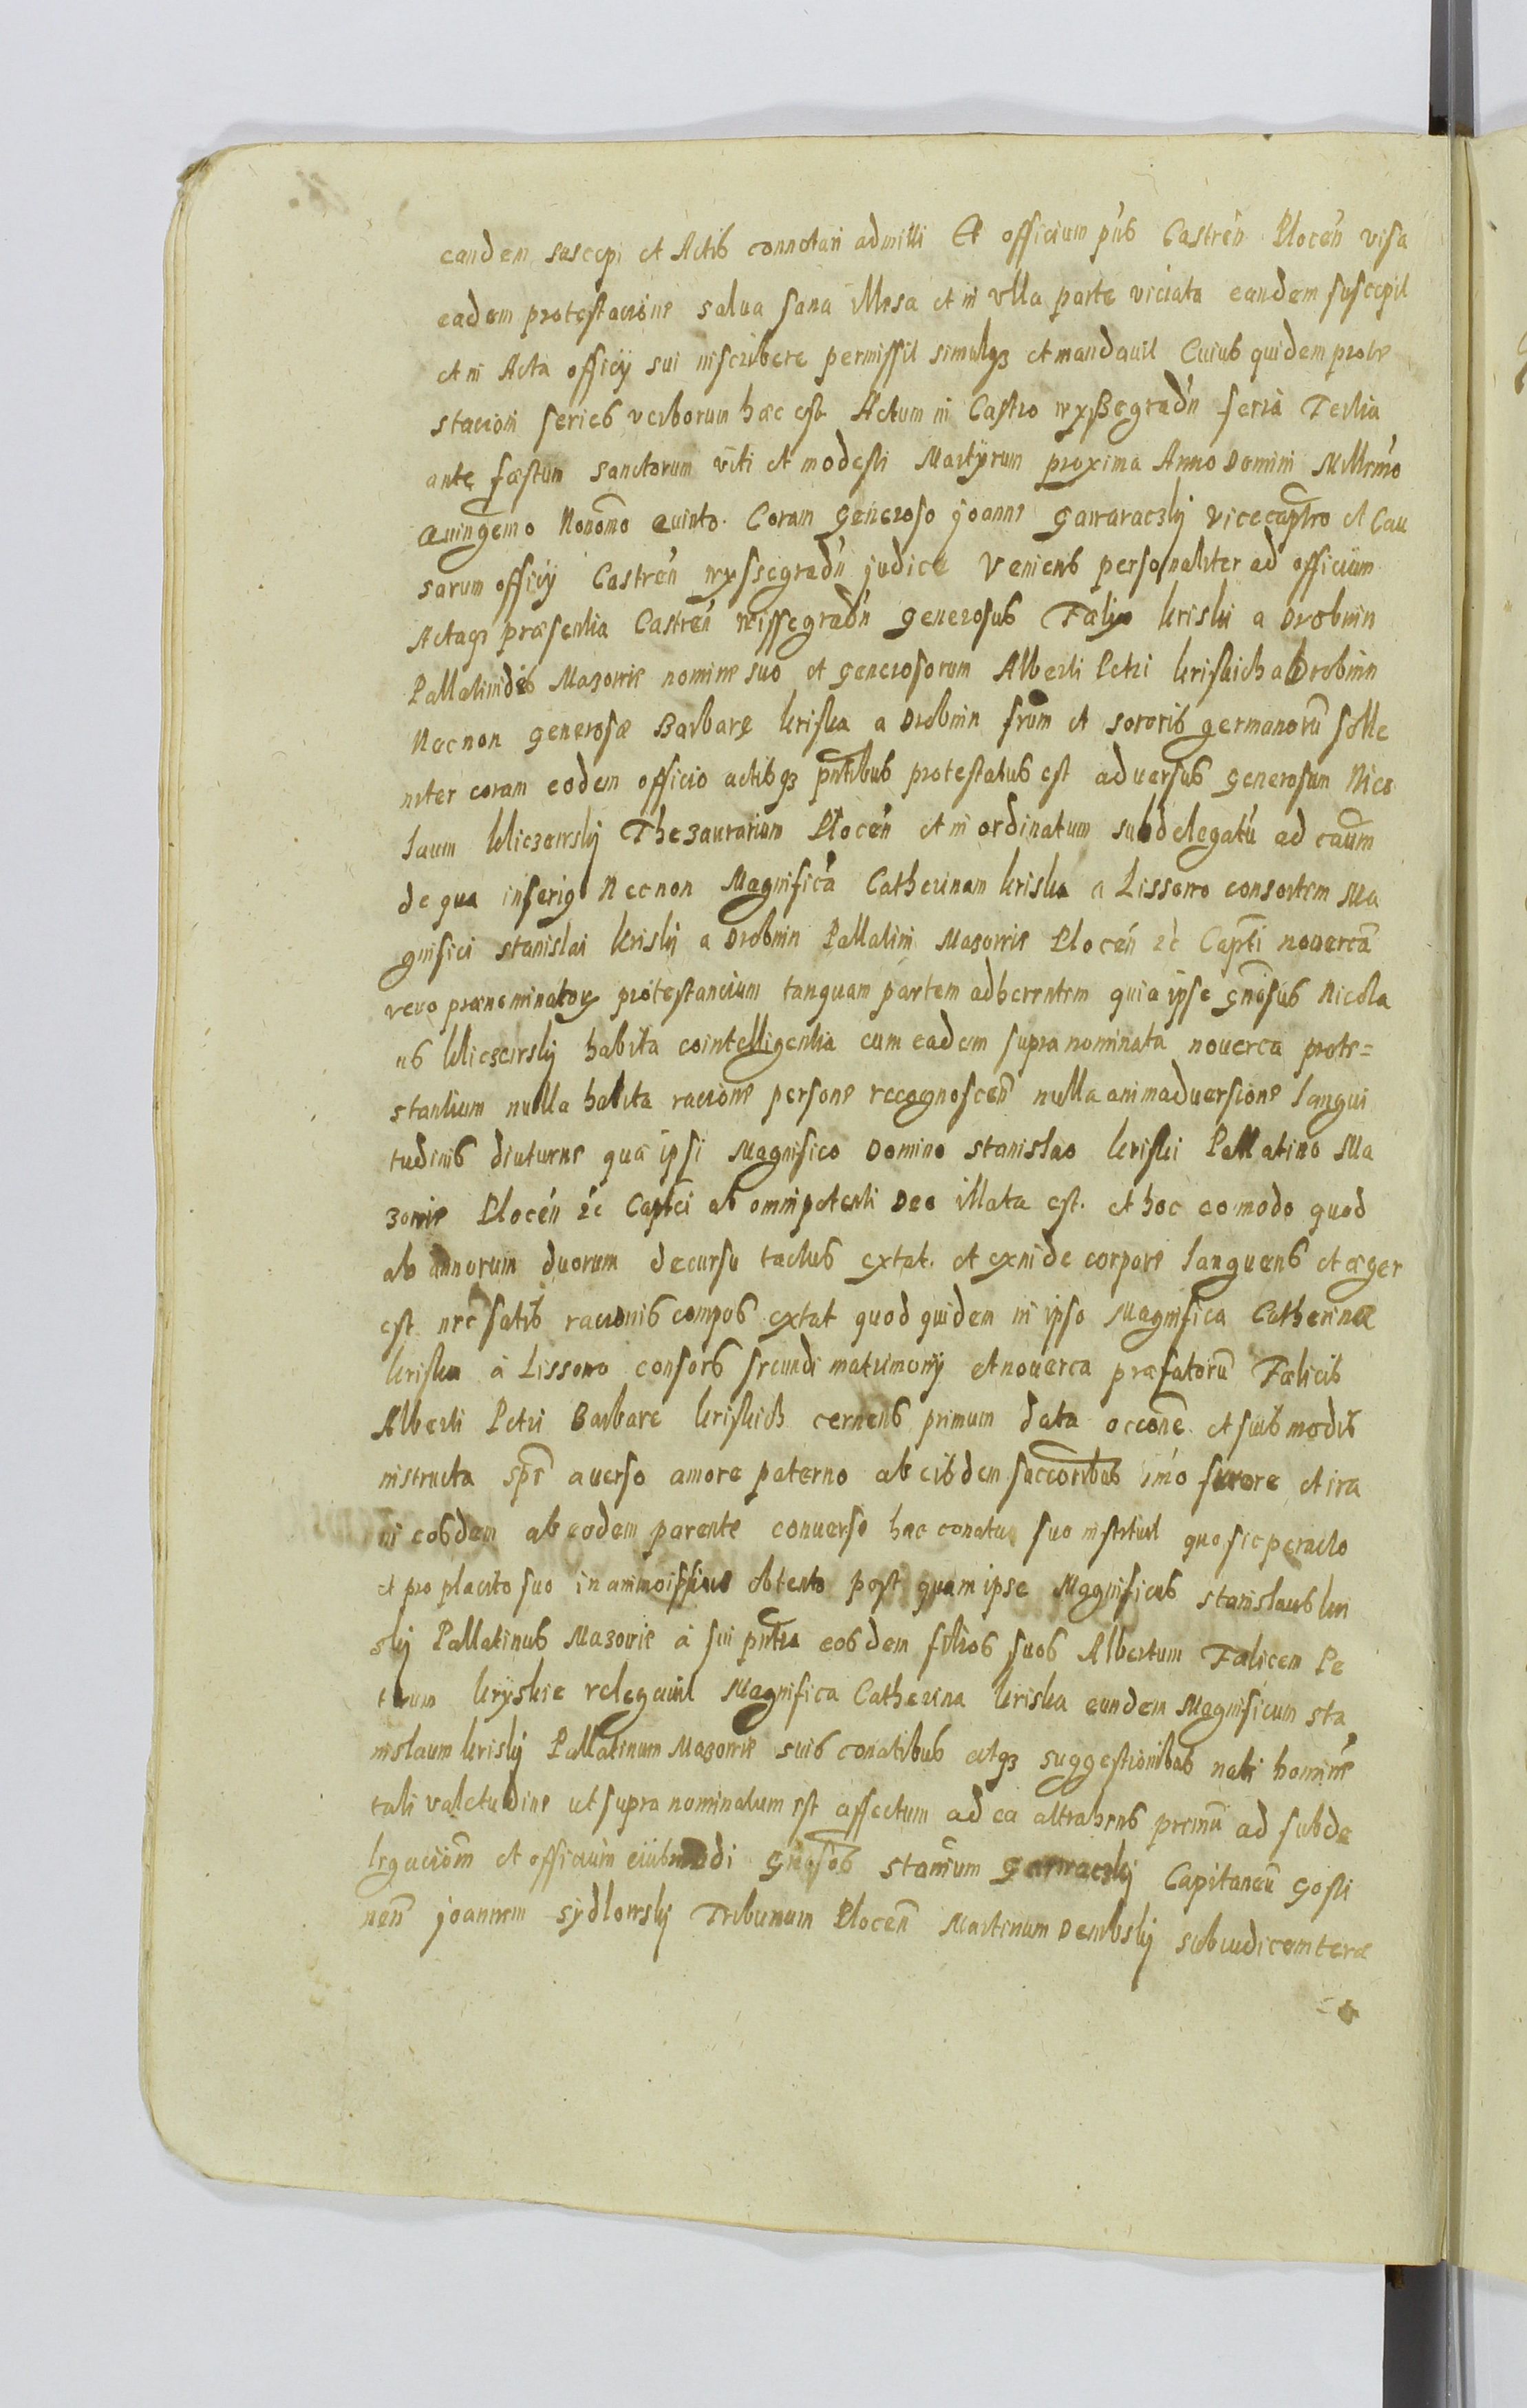 eandem suscepi et Actis connotari admitti Et officium pñs Castreñ Ploceñ visa
eadem protestacione salua sana illesa et in vlla parte viciata eandem suscepit
et in Acta officij sui inscribere permissit simulqз et mandauit Cuius quidem prote
stacioni series verborum hæc est Actum in Castro wyßegradñ feria Tertia
ante fæstum sanctorum viti et modesti Martÿrum proxima Anno Domini Millemo
Quingemo Nonomo Quinto. Coram generoso joanne gawaraczkij vicecaptro et Cau
sarum officij Castreñ wyssegradñ judice Veniens personaliter ad officium
Actaqз præsentia Castreñ wissegradñ generosus Fælix kriski a Drobnin
Pallatinides Mazowie nomine suo et generosorum Alberti Petri kriskich a Drobnin
Nec non generosæ Barbarę kriska a Drobnin frum et sororis germanorũ solle
niter coram eodem officio actisqз pñtibus protestatus est aduersus generosum Nico
laum kliczewskij Thezaurarium Ploceñ et in ordinatum subdelegatũ ad caũm
de qua inferiqз Nec non Magnificã Catherinam kriska a Lissowo consortem Ma
gnifici stanislai kriskij a Drobnin Pallatini Masowie Ploceñ zc Capti nouercã
vero prænominatoꝝ protestancium tanquam partem adherentem quia ipse gñosus Nicola
us kliczewskij habita cointelligentia cum eadem supra nominata nouerca prote=
stantium nulla habita racione persone recognosceñ nulla animaduersione langui
tudinis diuturne qua ipsi Magnifico Domino stanislao kriski Pallatino Ma
zowie Ploceñ zc Captei ab omnipotenti Deo illata est. et hoc eo modo quod
ab annorum duorum decursu tactus extat. et exinde corpore languens et æger
est nec satis racionis compos extat quod quidem in ipso Magnifica Catherina
kriska à Lissowo consors secundi matrimonij et nouerca præfatorũ Fælicis
Alberti Petri Barbare kriskich cernens primum data occone. et suis modis
instructa auerso amore paterno ab eisdem imo furore et ira
in eosdem ab eodem parente conuerso hac conatu suo instituit quo sic peracto
et pro placito suo obtento post quam ipse Magnificus stanislaus kri
skij Pallatinus Mazowie à sui pñtia eosdem filios suos Albertum Fælicem Pe
trum kryskie relegauit Magnifica Catherina kriska eundem Magnificum sta
nislaum kriskij Pallatinum Mazowie suis conatibus atqз suggestionibus homine
tali valetudine ut supra nominatum est affectum ad ea attrahens ad subde
legaciõm et officium eiusmodi gñosos stanium garwaczkij Capitaneũ gosti
neñ joannem sydlowskij Tribunum Ploceñ Martinum Dembskij subiudicem teræ